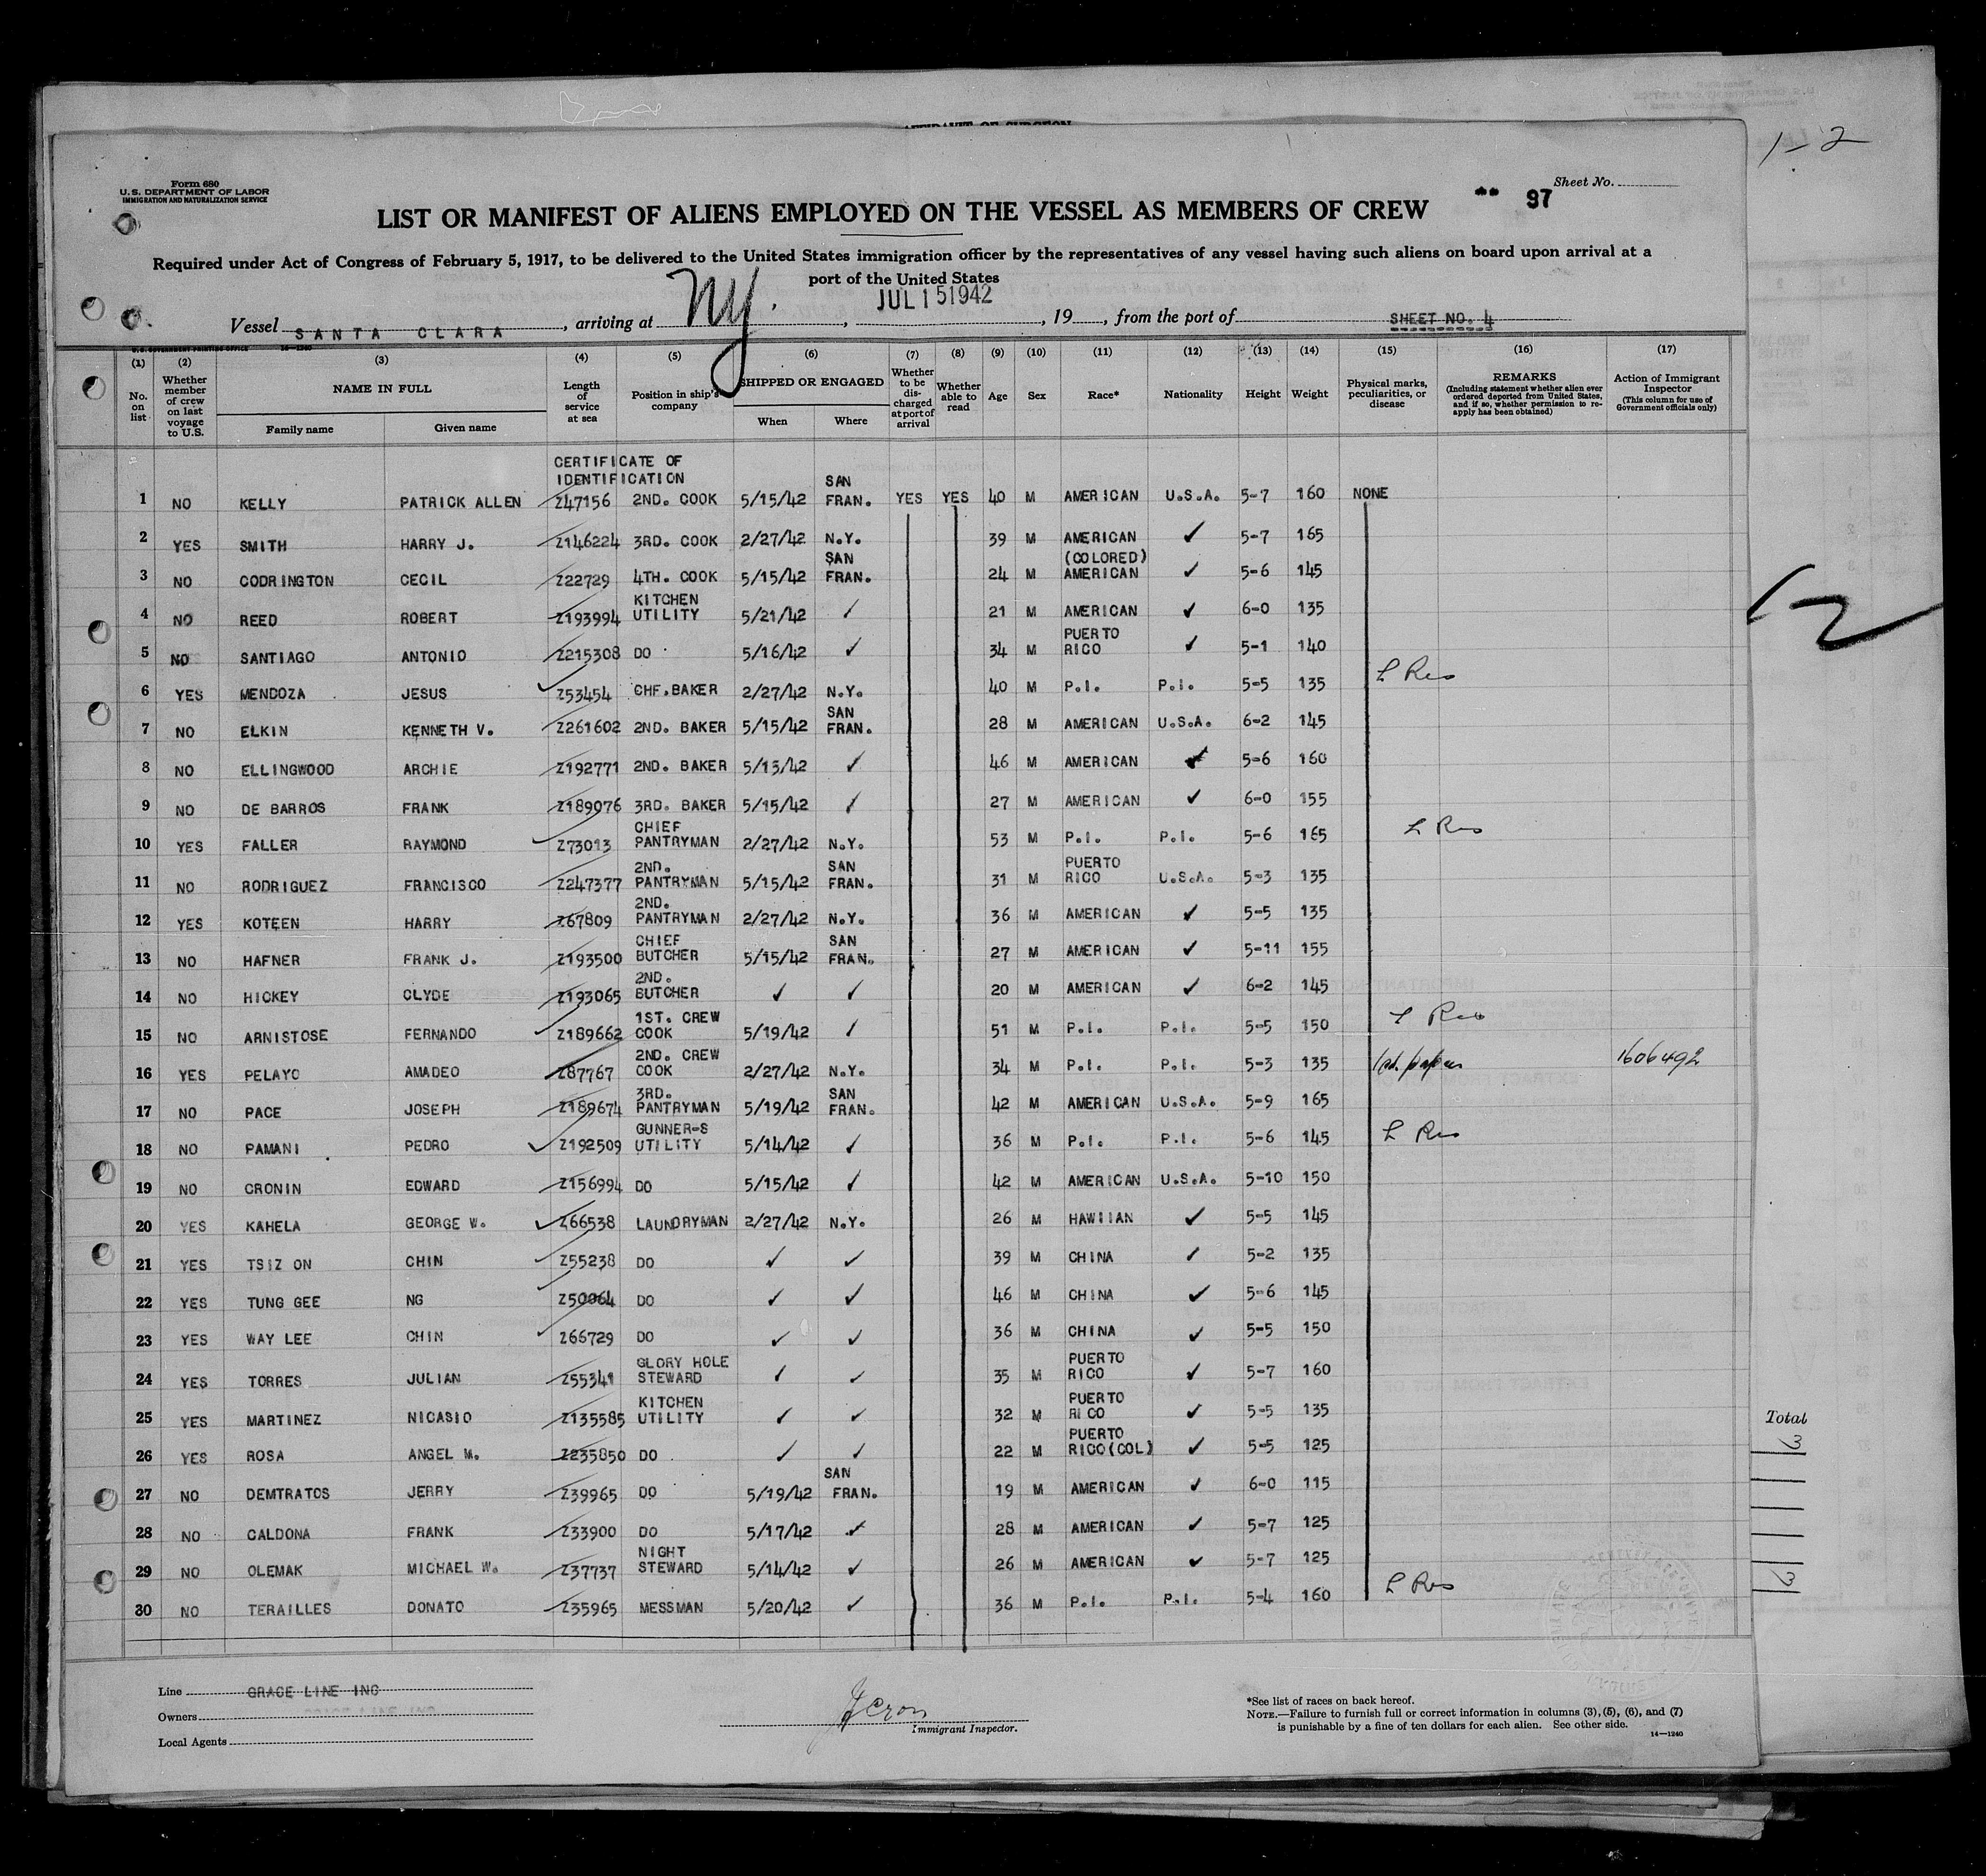 AFFIDAVIT OF SURGEON
1-2
Form 680
U. S. DEPARTMENT OF LABOR
IMMIGRATION AND NATURALIZATION SERVICE
Sheet No.
97
LIST OR MANIFEST OF ALIENS EMPLOYED ON THE VESSEL AS MEMBERS OF CREW
Required under Act of Congress of February 5, 1917, to be delivered to the United States immigration officer by the representatives of any vessel having such aliens on board upon arrival at a
port of the United States
Vessel SANTA CLARA, arriving at NY., JUL 15 1942, 19, from the port of SHEET NO. 4
U. S. GOVERNMENT PRINTING OFFICE 14—1240
(1) (2) (3) (4) (5) (6) (7) (8) (9) (10) (11) (12) (13) (14) (15) (16) (17)
No. on list | Whether member of crew on last voyage to U.S. | NAME IN FULL Family name Given name | Length of service at sea | Position in ship's company | SHIPPED OR ENGAGED When Where | Whether to be discharged at port of arrival | Whether able to read | Age | Sex | Race* | Nationality | Height | Weight | Physical marks, peculiarities, or disease | REMARKS (Including statement whether alien ever ordered deported from United States, and if so, whether permission to reapply has been obtained) | Action of Immigrant Inspector (This column for use of Government officials only)
CERTIFICATE OF IDENTIFICATION
1 NO KELLY PATRICK ALLEN Z47156 2ND. COOK 5/15/42 SAN FRAN. YES YES 40 M AMERICAN U.S.A. 5-7 160 NONE
2 YES SMITH HARRY J. Z146224 3RD. COOK 2/27/42 N.Y. 39 M AMERICAN ✓ 5-7 165
3 NO CODRINGTON CECIL Z22729 4TH. COOK 5/15/42 SAN FRAN. 24 M (COLORED) AMERICAN ✓ 5-6 145
4 NO REED ROBERT Z193994 KITCHEN UTILITY 5/21/42 ✓ 21 M AMERICAN ✓ 6-0 135
5 NO SANTIAGO ANTONIO Z215308 DO 5/16/42 ✓ 34 M PUERTO RICO ✓ 5-1 140
6 YES MENDOZA JESUS Z53454 CHF. BAKER 2/27/42 N.Y. 40 M P.I. P.I. 5-5 135 L Res
7 NO ELKIN KENNETH V. Z261602 2ND. BAKER 5/15/42 SAN FRAN. 28 M AMERICAN U.S.A. 6-2 145
8 NO ELLINGWOOD ARCHIE Z192771 2ND. BAKER 5/13/42 ✓ 46 M AMERICAN ✓ 5-6 160
9 NO DE BARROS FRANK Z189076 3RD. BAKER 5/15/42 ✓ 27 M AMERICAN ✓ 6-0 155
10 YES FALLER RAYMOND Z73013 CHIEF PANTRYMAN 2/27/42 N.Y. 53 M P.I. P.I. 5-6 165 L Res
11 NO RODRIGUEZ FRANCISCO Z247377 2ND. PANTRYMAN 5/15/42 SAN FRAN. 31 M PUERTO RICO U.S.A. 5-3 135
12 YES KOTEEN HARRY Z67809 2ND. PANTRYMAN 2/27/42 N.Y. 36 M AMERICAN ✓ 5-5 135
13 NO HAFNER FRANK J. Z193500 CHIEF BUTCHER 5/15/42 SAN FRAN. 27 M AMERICAN ✓ 5-11 155
14 NO HICKEY CLYDE Z193065 2ND. BUTCHER ✓ ✓ 20 M AMERICAN ✓ 6-2 145
15 NO ARNISTOSE FERNANDO Z189662 1ST. CREW COOK 5/19/42 ✓ 51 M P.I. P.I. 5-5 150 L Res
16 YES PELAYO AMADEO Z87767 2ND. CREW COOK 2/27/42 N.Y. 34 M P.I. P.I. 5-3 135 1st papers 1606492
17 NO PACE JOSEPH Z189674 3RD. PANTRYMAN 5/19/42 SAN FRAN. 42 M AMERICAN U.S.A. 5-9 165
18 NO PAMANI PEDRO Z192509 GUNNER-S UTILITY 5/14/42 ✓ 36 M P.I. P.I. 5-6 145 L Res
19 NO CRONIN EDWARD Z156994 DO 5/15/42 ✓ 42 M AMERICAN U.S.A. 5-10 150
20 YES KAHELA GEORGE W. Z66538 LAUNDRYMAN 2/27/42 N.Y. 26 M HAWIIAN ✓ 5-5 145
21 YES TSIZ ON CHIN Z55238 DO ✓ ✓ 39 M CHINA ✓ 5-2 135
22 YES TUNG GEE NG Z50064 DO ✓ ✓ 46 M CHINA ✓ 5-6 145
23 YES WAY LEE CHIN Z66729 DO ✓ ✓ 36 M CHINA ✓ 5-5 150
24 YES TORRES JULIAN Z55341 GLORY HOLE STEWARD ✓ ✓ 35 M PUERTO RICO ✓ 5-7 160
25 YES MARTINEZ NICASIO Z135585 KITCHEN UTILITY ✓ ✓ 32 M PUERTO RICO ✓ 5-5 135
26 YES ROSA ANGEL M. Z235850 DO ✓ ✓ 22 M PUERTO RICO(COL) ✓ 5-5 125
27 NO DEMTRATOS JERRY Z39965 DO 5/19/42 SAN FRAN. 19 M AMERICAN ✓ 6-0 115
28 NO CALDONA FRANK Z33900 DO 5/17/42 ✓ 28 M AMERICAN ✓ 5-7 125
29 NO OLEMAK MICHAEL W. Z37737 NIGHT STEWARD 5/14/42 ✓ 26 M AMERICAN ✓ 5-7 125
30 NO TERAILLES DONATO Z35965 MESSMAN 5/20/42 ✓ 36 M P.I. P.I. 5-4 160 L Res
12
Total
3
3
Line GRACE LINE INC
Owners
Local Agents
Immigrant Inspector.
*See list of races on back hereof.
NOTE.—Failure to furnish full or correct information in columns (3), (5), (6), and (7)
is punishable by a fine of ten dollars for each alien. See other side.
14—1240